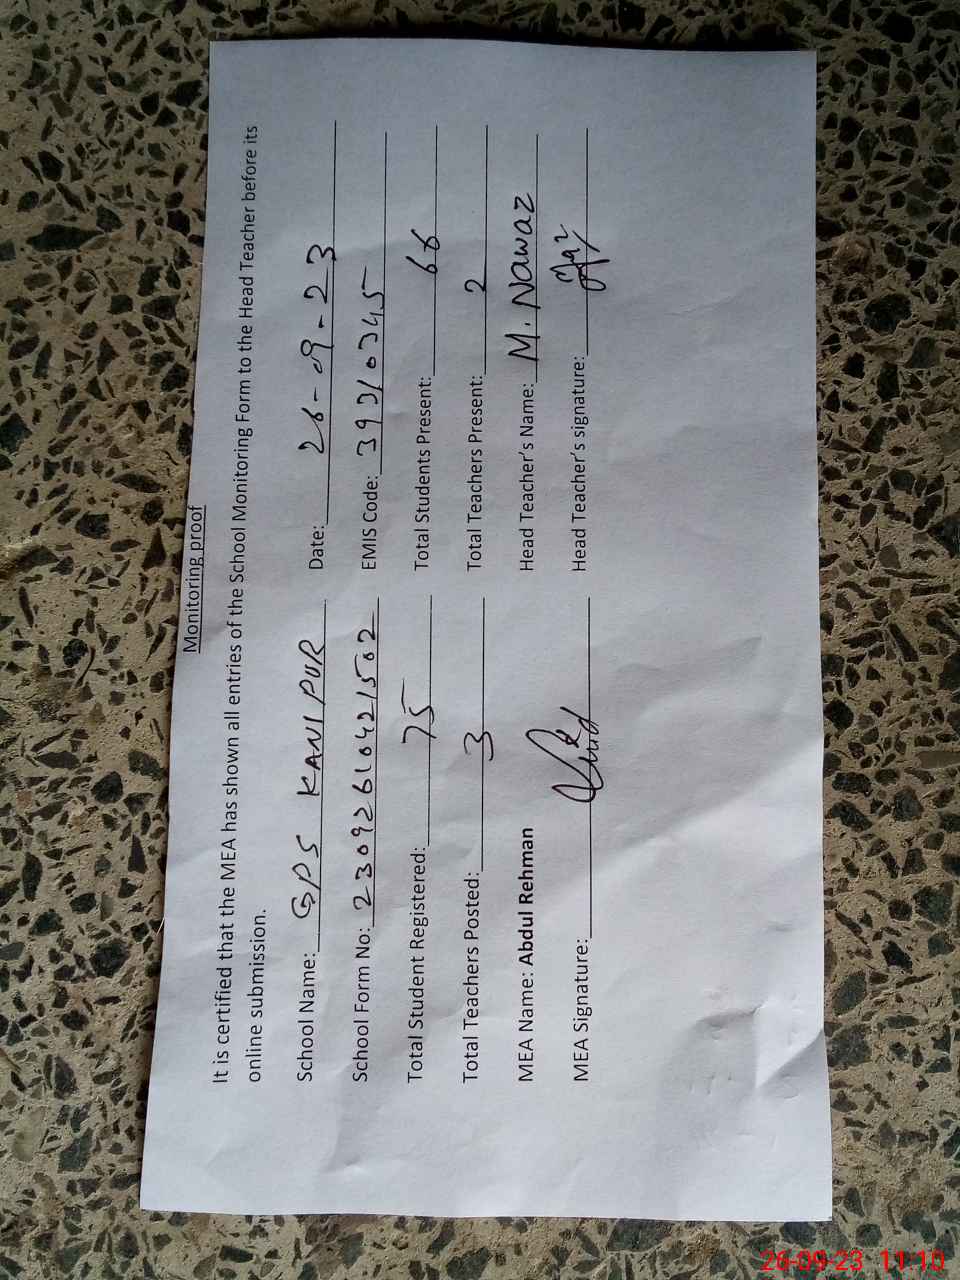 Monitoring proof
It is certified that the MEA has shown all entries of the School Monitoring Form to the Head Teacher before its
online submission.
School Name: GPS KANIPUR Date: 26-09-23
School Form No: 23092610421502 EMIS Code: 39310345
Total Student Registered: 75 Total Students Present: 66
Total Teachers Posted: 3 Total Teachers Present: 2
MEA Name: Abdul Rehman Head Teacher's Name: M. Nawaz
MEA Signature: Head Teacher's signature:
26-09-23 11:10